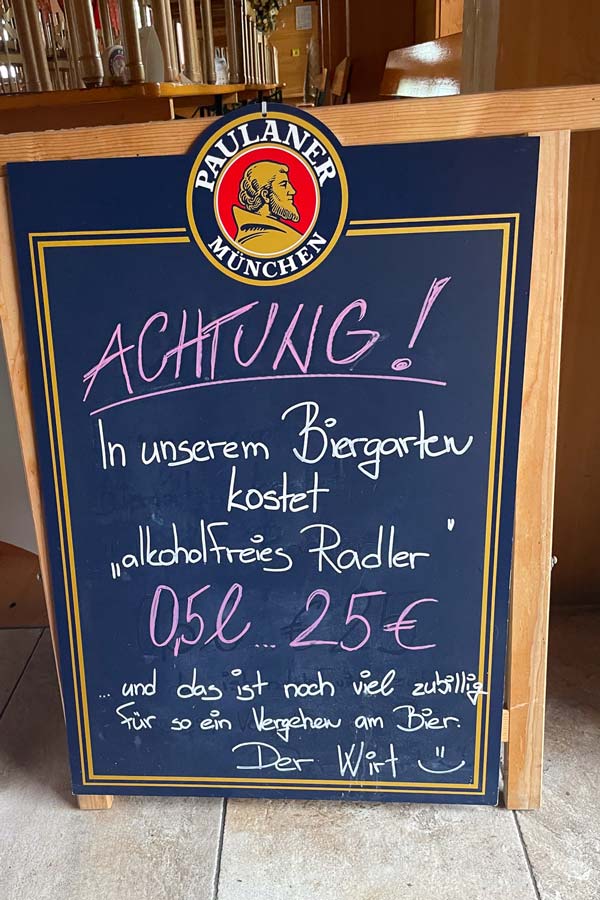 PAULANER
MÜNCHEN
ACHTUNG!
In unserem Biergarten
kostet
„alkoholfreies Radler"
0,5l ... 25€
... und das ist noch viel zubillig
für so ein Vergehen am Bier.
Der Wirt